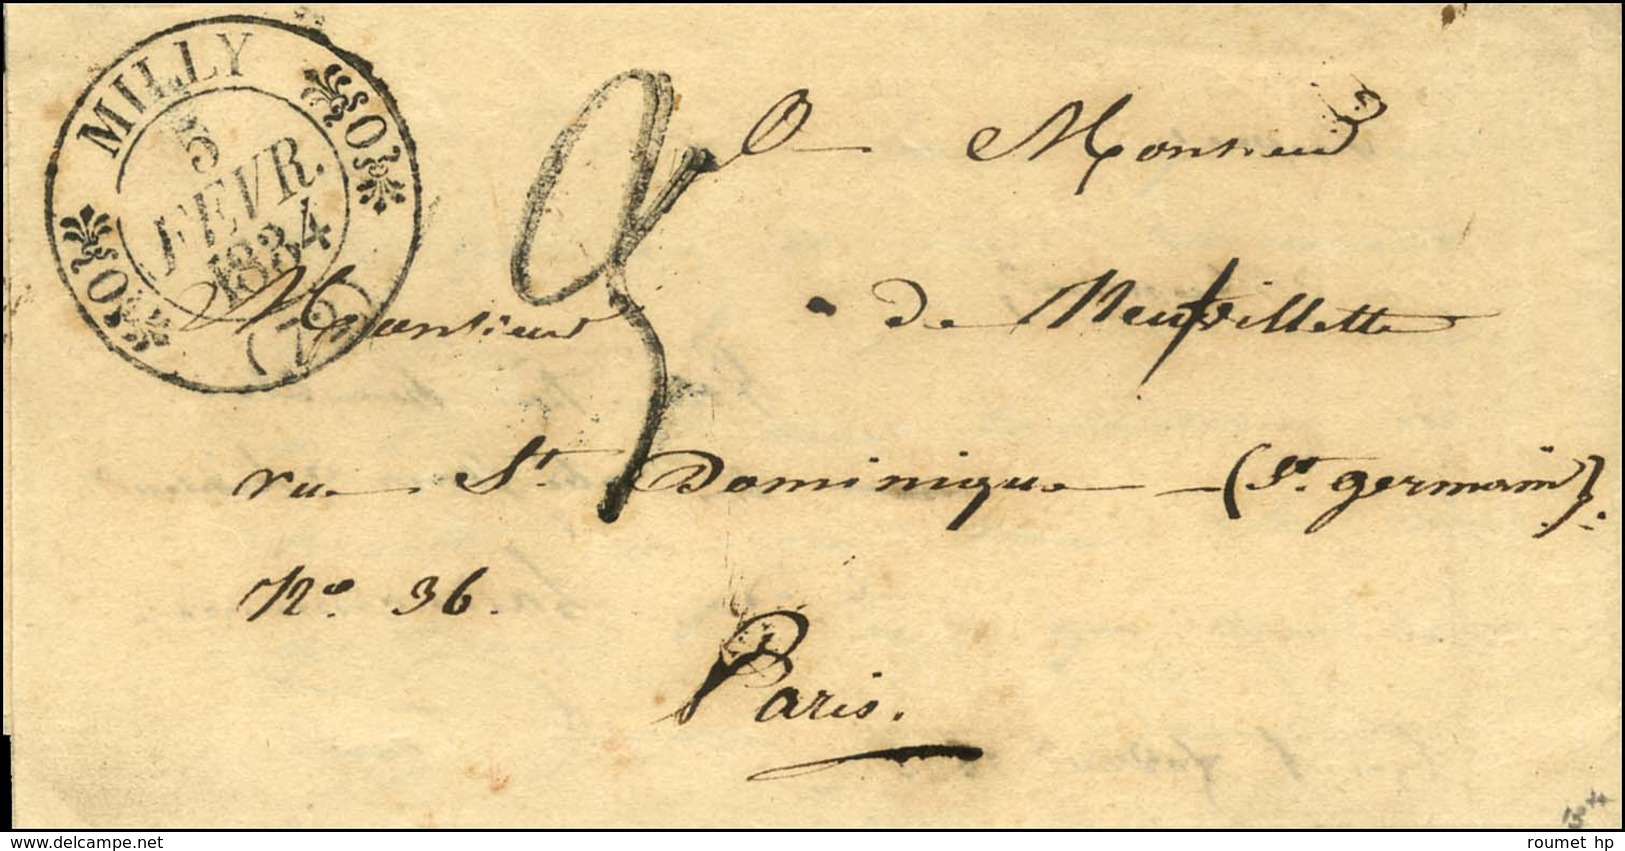 MILLY
5
FEVR.
1834
(72)
3
A Monsieur
Monsieur de Neufvillette
rue St. Dominique (St. germain).
No. 36.
Paris.
roumet hp